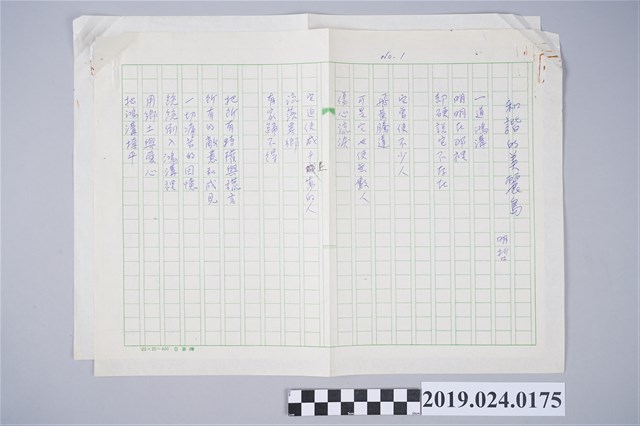 No. 1
和諧的美麗島
明哲
一道鴻溝
明明在那裡
却硬說它不存在
它曾使不少人
飛黃騰達
可是它也使無數人
傷心流淚
它迫使成千成萬的人
流落異鄉
有家歸不得
把所有特權與謊言
所有的敵意和成見
一切痛苦的回憶
統統倒入鴻溝裡
用鄉土與愛心
把鴻溝填平
2019.024.0175